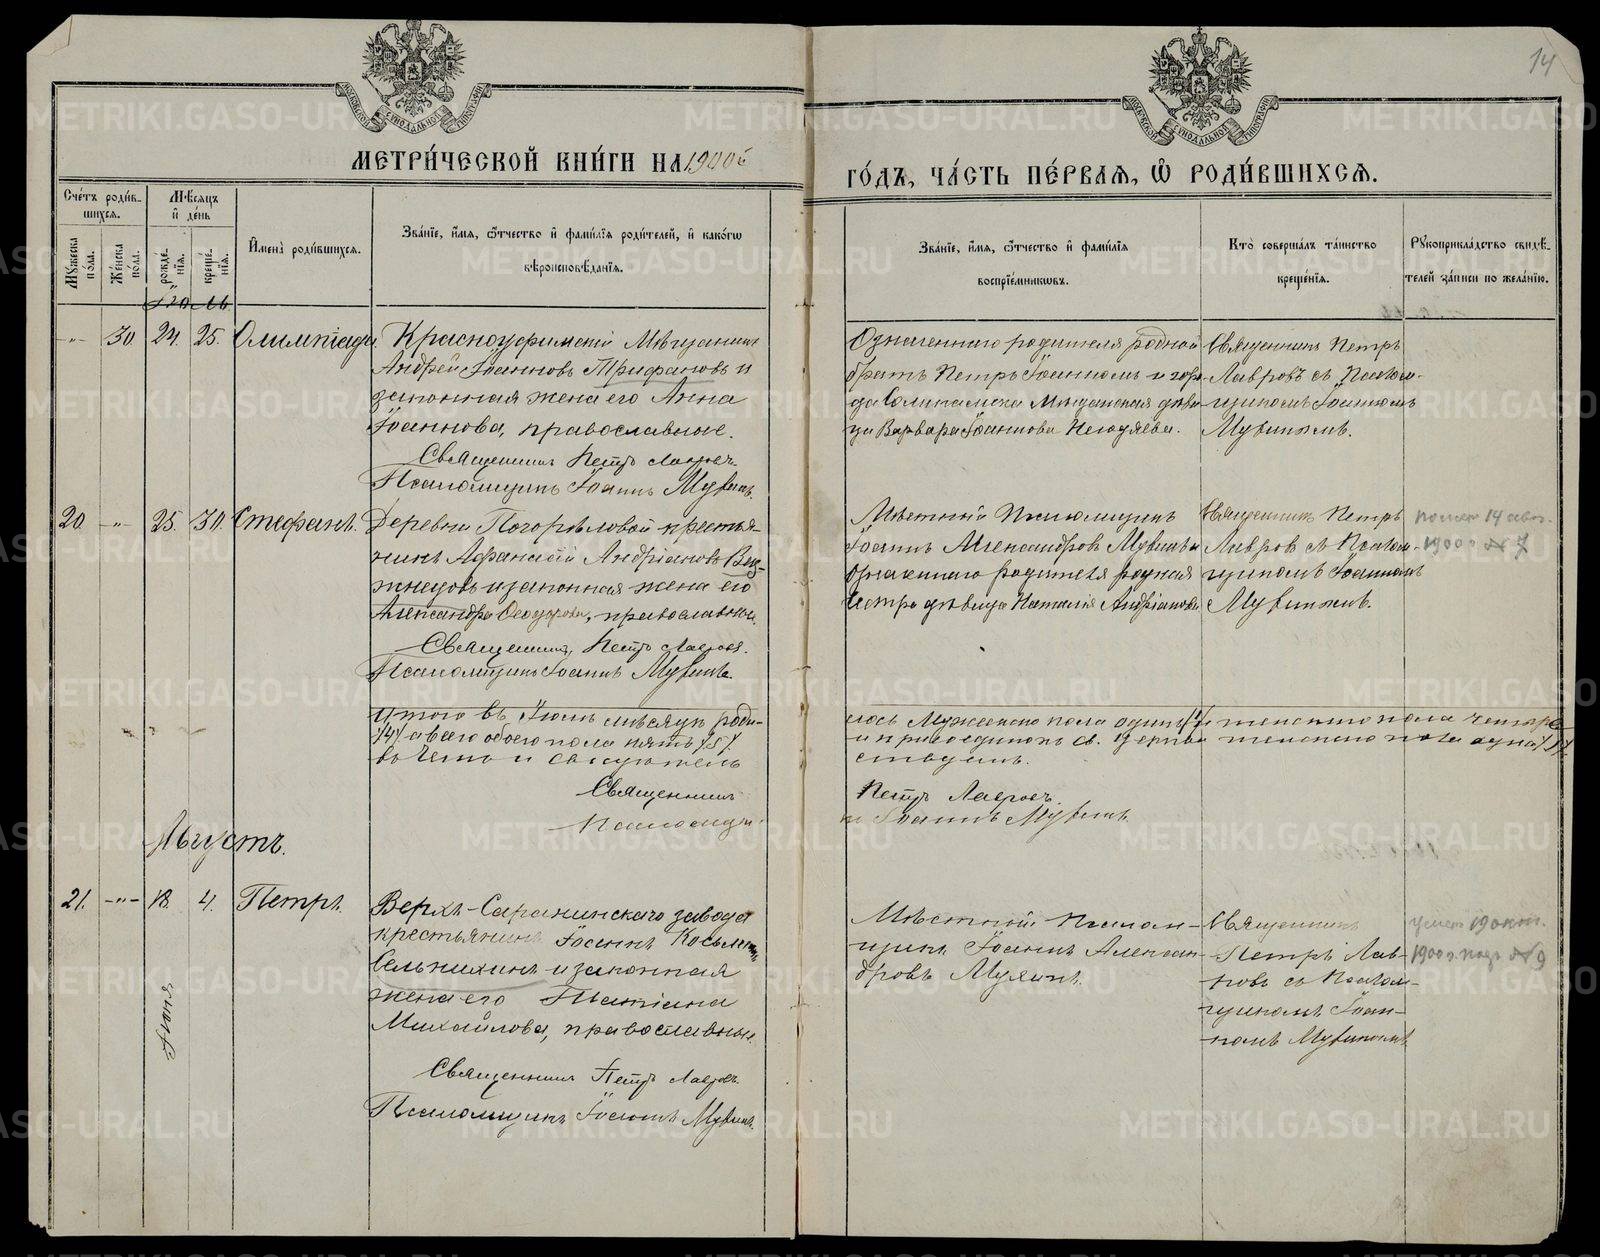 14
МЕТРИ́ЧЕСКОЙ КНИ́ГИ НА 1900й
ГО́ДЪ, ЧА́СТЬ ПЕ́РВАЯ, Ѽ РОДИ́ВШИХСЯ.
Сче́тъ роди́в-
шихся.
Му́жеска по́ла.
Же́нска по́ла.
Мѣ́сяцъ
и҆ де́нь
рожде́-
нїя.
креще́-
нїя.
И҆мена̀ роди́вшихся.
Зва́нїе, и҆́мя, ѻ҆́тчество и҆ фами́лїя роди́телей, и҆ како́гѡ
вѣроисповѣ́данїя.
Зва́нїе, и҆́мя, ѻ҆́тчество и҆ фами́лїя
воспрїе́мниковъ.
Кто̀ соверша́лъ та́инство
креще́нїя.
Рꙋкоприкла́дство свидѣ́-
телей за́писи по жела́нїю.
Іюль
-"- 30 24. 25. Олимпіада.
Красноуфимскій Мѣщанинъ
Андрей Іоанновъ Трифановъ и
законная жена его Анна
Іоаннова, православные.
Священникъ Петръ Лавровъ.
Псаломщикъ Іоаннъ Мувинъ.
Означеннаго родителя родной
братъ Петръ Іоанновъ и горо-
да Соликамска Мѣщанская дѣви-
ца Варвара Іоаннова
Священникъ Петръ
Лавровъ съ Псалом-
щикомъ Іоанномъ
Мувинымъ.
20 -"- 25. 30. Стефанъ.
Деревни Погорѣловой крестья-
нинъ Афанасій Андріановъ
и законная жена его
Александра Ѳеодорова, православные.
Священникъ Петръ Лавровъ.
Псаломщикъ Іоаннъ Мувинъ.
Мѣстный Псаломщикъ
Іоаннъ Александровъ Мувинъ и
означеннаго родителя родная
сестра дѣвица Наталія Андріанова
Священникъ Петръ
Лавровъ съ Псалом-
щикомъ Іоанномъ
Мувинымъ.
14 авг.
1900 г № 7
Итого въ Іюлѣ мѣсяцѣ роди-
лось Мужескаго пола одинъ /1/ и женскаго пола четыре
/4/ а всего обоего пола пять /5/
и присоединенъ св. Церкви женскаго пола одна /1/
Священникъ
Петръ Лавровъ.
Іоаннъ Мувинъ.
Августъ.
21. -"- 18 4. Петръ.
Іюня
Верхъ-Саранинскаго завода
крестьянинъ Іоаннъ Косьминъ
Сельнихинъ и законная
жена его Татіана
Михайлова, православные.
Священникъ Петръ Лавровъ.
Псаломщикъ Іоаннъ Мувинъ.
Мѣстный Псалом-
щикъ Іоаннъ Алексан-
дровъ Мувинъ.
Священникъ
Петръ Лав-
ровъ съ Псалом-
щикомъ Іоан-
номъ Мувинымъ
19 окт.
1900 г. подъ № 9
METRIKI.GASO-URAL.RU